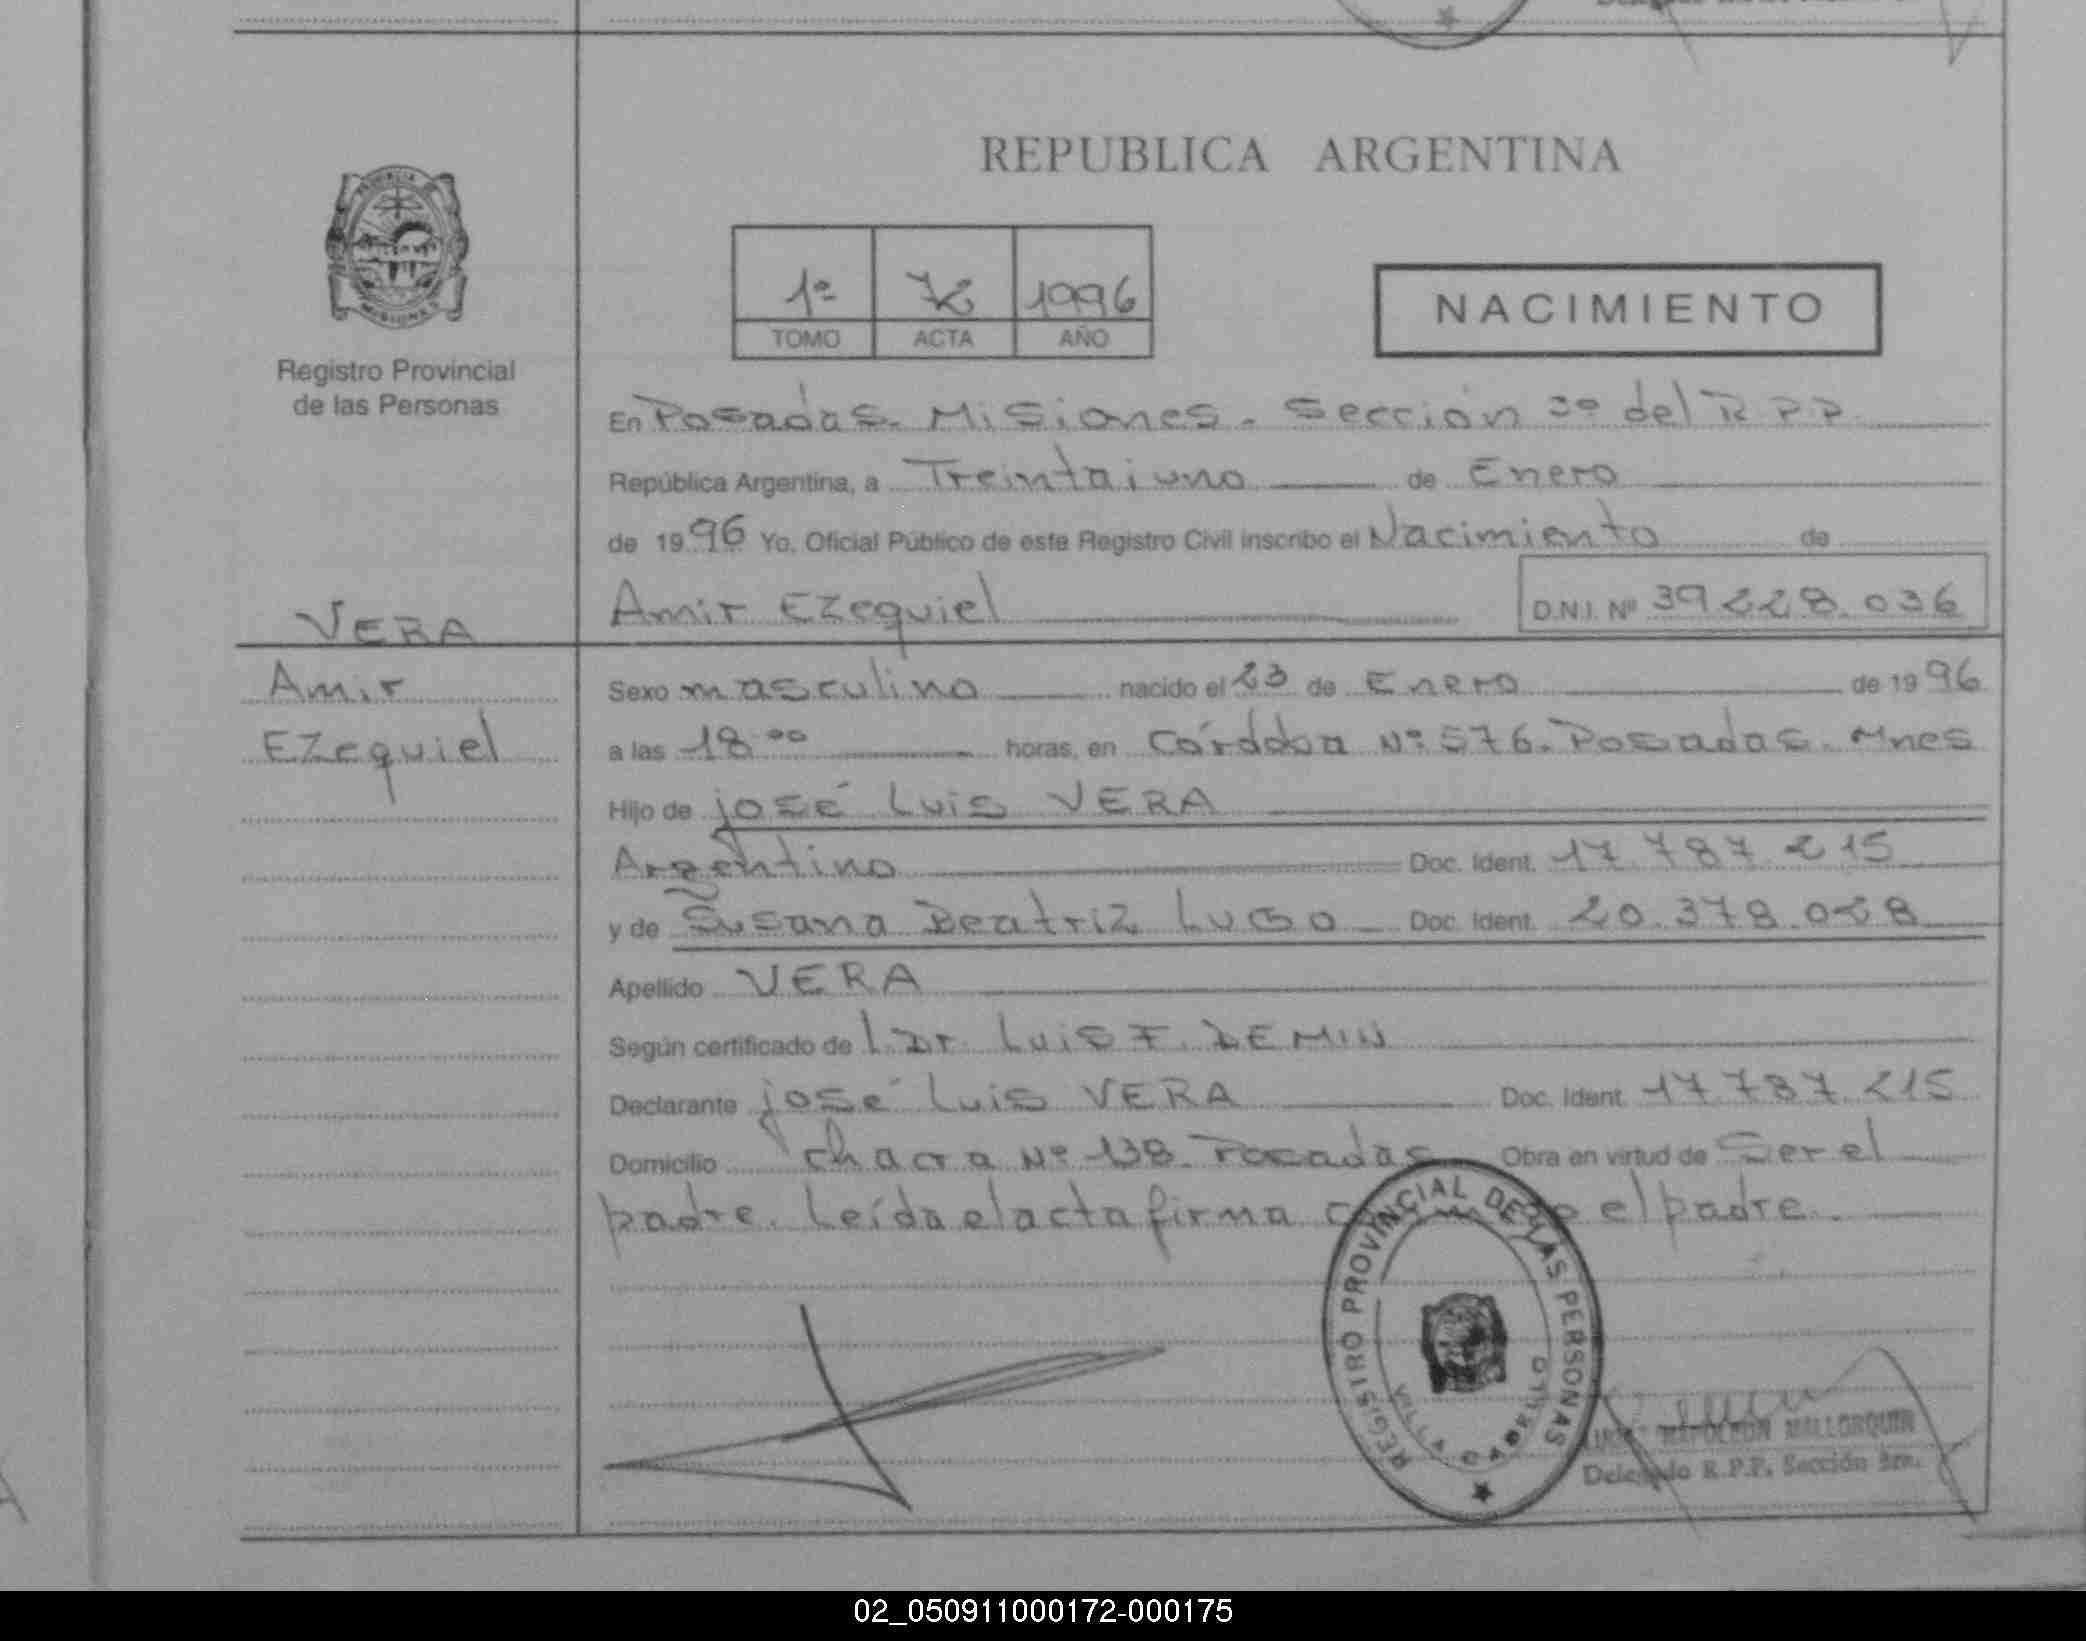 REPUBLICA ARGENTINA
PROVINCIA DE MISIONES
Registro Provincial
de las Personas
1º 72 1996
TOMO ACTA AÑO
NACIMIENTO
En Posadas. Misiones. Sección 3º del R P P
República Argentina, a Treintaiuno de Enero
de 1996 Yo, Oficial Público de este Registro Civil inscribo el Nacimiento de
Amir Ezequiel D.N.I. Nº 39 228.036
VERA
Amir
Ezequiel
Sexo masculino nacido el 23 de Enero de 1996
a las 18 ºº horas, en Córddoa Nº 576. Posadas. Mnes
Hijo de josé Luis VERA
Argentino Doc. Ident. 17.787.215
y de Susana Beatriz Lugo Doc. Ident. 20.378.028
Apellido VERA
Según certificado de l Dr. Luis F. DEMIN
Declarante josé Luis VERA Doc. Ident. 17.787.215
Domicilio chacra Nº 138. Posadas Obra en virtud de Ser el
padre. Leída el acta firma el padre.
REGISTRO PROVINCIAL DE LAS PERSONAS
VILLA CABELLO
NAPOLEON MALLORQUIN
Delegado R.P.P. Sección 3ra.
02_050911000172-000175